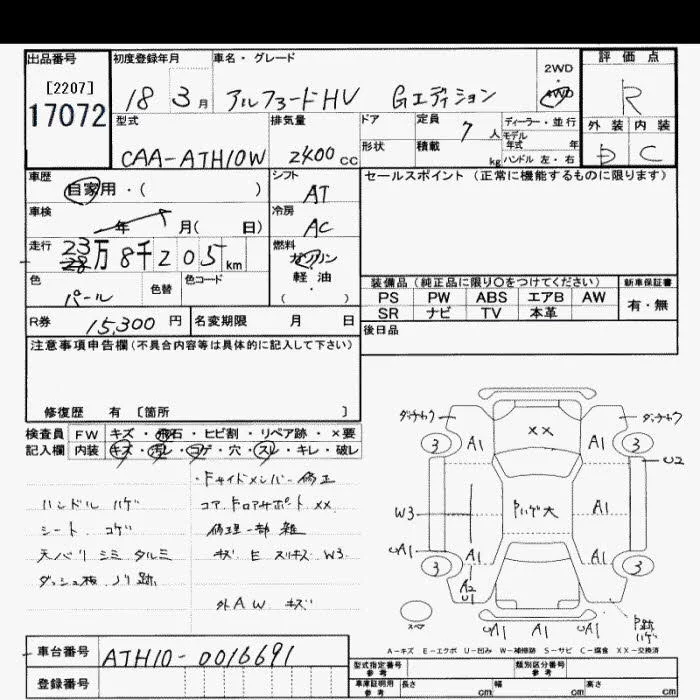 出品番号
[2207]
17072
初度登録年月
18 3月
車名・グレード
アルファードHV Gエディション
2WD
・
4WD
評価点
R
型式
CAA-ATH10W
排気量
2400cc
ドア
形状
定員 7人
積載 kg
ディーラー・並行
モデル
年式 年
ハンドル 左・右
外装 内装
D C
車歴
自家用・( )
シフト
AT
セールスポイント(正常に機能するものに限ります)
車検
年 月( 日)
冷房
AC
走行 23万8千205km
28
燃料
ガソリン
軽油
・
( )
色 パール
色替
色コード
装備品(純正品に限り○をつけてください)
新車保証書
PS PW ABS エアB AW
SR ナビ TV 本革
有・無
R券 15,300円
名変期限 月 日
後日品
注意事項申告欄(不具合内容等は具体的に記入して下さい)
修復歴 有 [箇所 ]
検査員 FW キズ・飛石・ヒビ割・リペア跡・×要
記入欄 内装 キズ・汚レ・コゲ・穴・スレ・キレ・破レ
ハンドル ハゲ
シート コゲ
天バリ シミ タルミ
ダッシュ板 ノリ跡
・Fサイドメンバー修正
コアサポート XX
修理一部雑
キズ E スリキズ W3
外AW キズ
XX
A1 A1
3 3
U2
W3
Pハゲ大
A1
UA1
A1 A1
3 3
A2
U1
スペア
UA1 A1 UA1
P跡
ハゲ
A-キズ E-エクボ U-凹み W-補修跡 S-サビ C-腐食 XX-交換済
車台番号 ATH10-0016691
登録番号
型式指定番号
参考
類別区分番号
参考
車庫証明用
参考
長さ cm 幅 cm 高さ cm